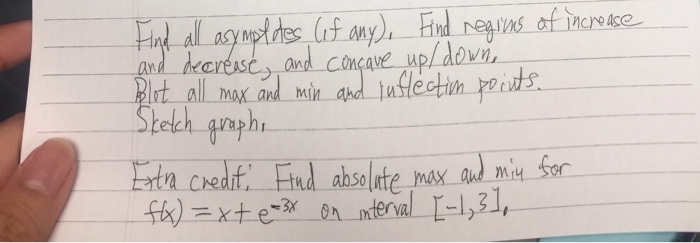 Find all asymptotes (if any). Find regions of increase
and decrease, and concave up/down.
Plot all max and min and inflection points.
Sketch graph.
Extra credit: Find absolute max and min for
f(x) = x + e^-3x on interval [-1,3].